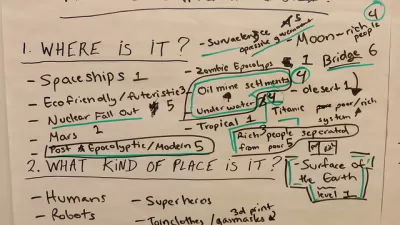 1. WHERE IS IT?
- Survaelence 5
opressive government
- Moon-rich
people
4
- Zombie Epocolyps 1
Bridge 6
- Spaceships 1
- Oil mine settments 4
- desert 1
- Ecofriendly/futuristic 3
- Under water 4
Titanic
poor/rich
system
- Nuclear Fall Out 5
- Mars 2
- Tropical 1
- Rich people seperated
from poor 5
- Post Epocolyptic/Modern 5
2. WHAT KIND OF PLACE IS IT?
- Surface of
the Earth
level 1
- Humans
- Superheros
- Robots
3d print
gasmasks 2